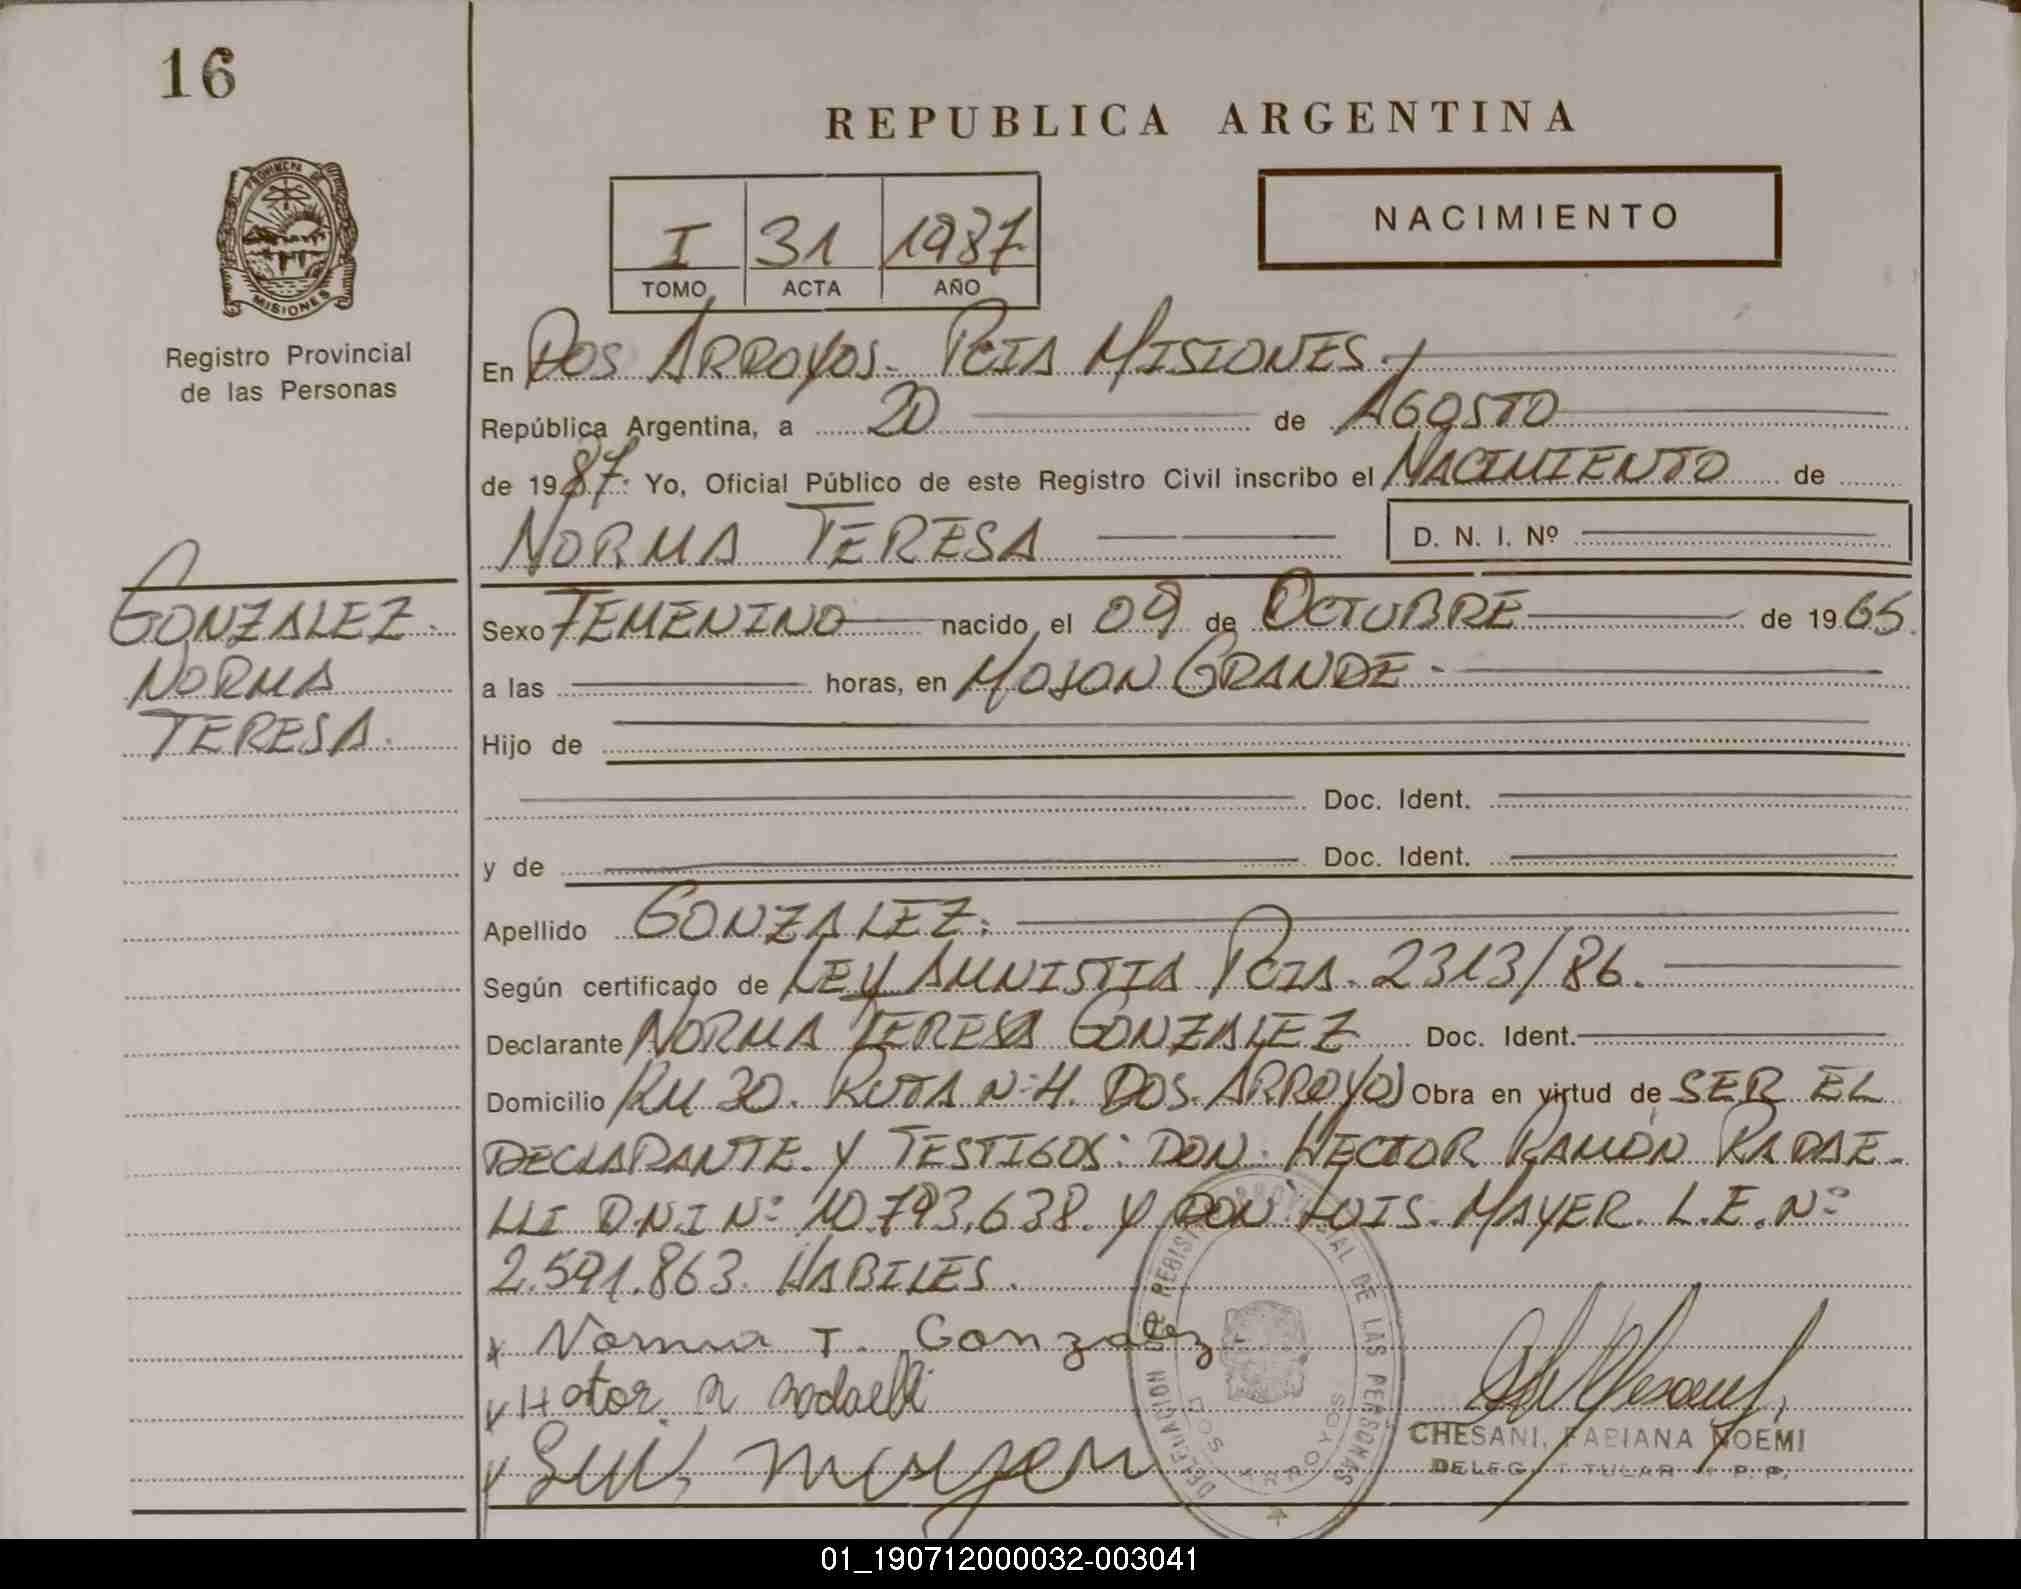 16
REPUBLICA ARGENTINA
PROVINCIA DE
MISIONES
Registro Provincial
de las Personas
I 31 1987
TOMO ACTA AÑO
NACIMIENTO
En DOS ARROYOS - PCIA MISIONES.
República Argentina, a 20 de AGOSTO
de 1987. Yo, Oficial Público de este Registro Civil inscribo el NACIMIENTO de
NORMA TERESA D. N. I. Nº
GONZALEZ.
NORMA
TERESA.
Sexo FEMENINO nacido el 09 de OCTUBRE de 1965.
a las horas, en MOJON GRANDE -
Hijo de
Doc. Ident.
y de Doc. Ident.
Apellido GONZALEZ.
Según certificado de LEY AMNISTIA PCIA. 2313/86.
Declarante NORMA TERESA GONZALEZ Doc. Ident.
Domicilio KM 30. RUTA Nº 4. DOS ARROYOS Obra en virtud de SER EL
DECLARANTE Y TESTIGOS: DON HECTOR RAMON RADAE-
LLI D.N.I Nº 10.793.638. Y DON LUIS MAYER. L.E. Nº
2.591.863. HABILES.
x Norma T. Gonzalez
Hector R Radaelli
Luis Mayer
DELEGACION DEL REGISTRO PROVINCIAL DE LAS PERSONAS
DOS ARROYOS
CHESANI, FABIANA NOEMI
DELEG. TITULAR R. P. P.
01_190712000032-003041